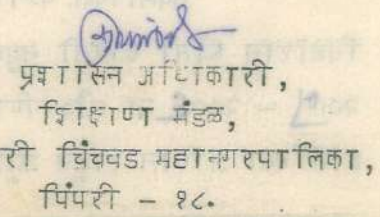 प्रशासन अधिकारी,
शिक्षण मंडळ,
री चिंचवड महानगरपालिका,
पिंपरी - १८.